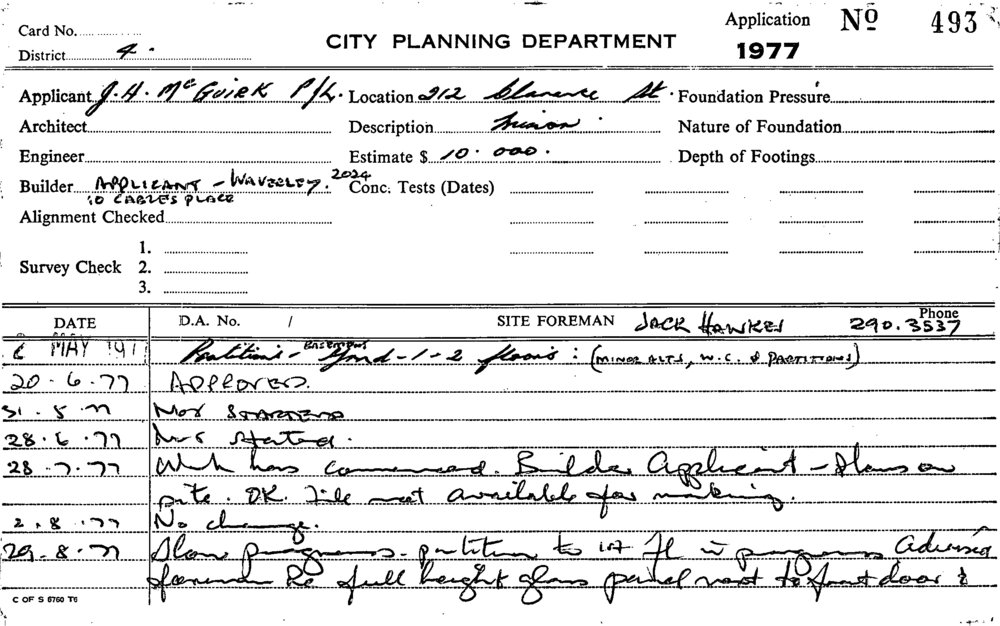 Card No.
District 4.
CITY PLANNING DEPARTMENT
Application No 493
1977
Applicant J.H. McGuirk P/L.
Location 212 Clarence St.
Foundation Pressure
Architect
Description Minor
Nature of Foundation
Engineer
Estimate $ 10.000.
Depth of Footings
Builder APPLICANT - WAVERLEY. 2024
10 CABLES PLACE
Conc. Tests (Dates)
Alignment Checked
Survey Check
1.
2.
3.
DATE
D.A. No. /
SITE FOREMAN JACK HAWKES
Phone 290.3537
MAY 197 Partitions - BASEMENT Grnd-1-2 floors: (MINOR ALTS, W.C. & PARTITIONS)
20.6.77 APPROVED.
31.5.77 NOT STARTED
28.6.77 Not Started.
28.7.77 Work has commenced. Builder Applicant - Plans on
site. OK. File not available for marking.
2.8.77 No change.
29.8.77 Slow progress - partition to 1st Fl in progress Advised
foreman Re full height glass panel next to front door &
C OF S 6760 T6